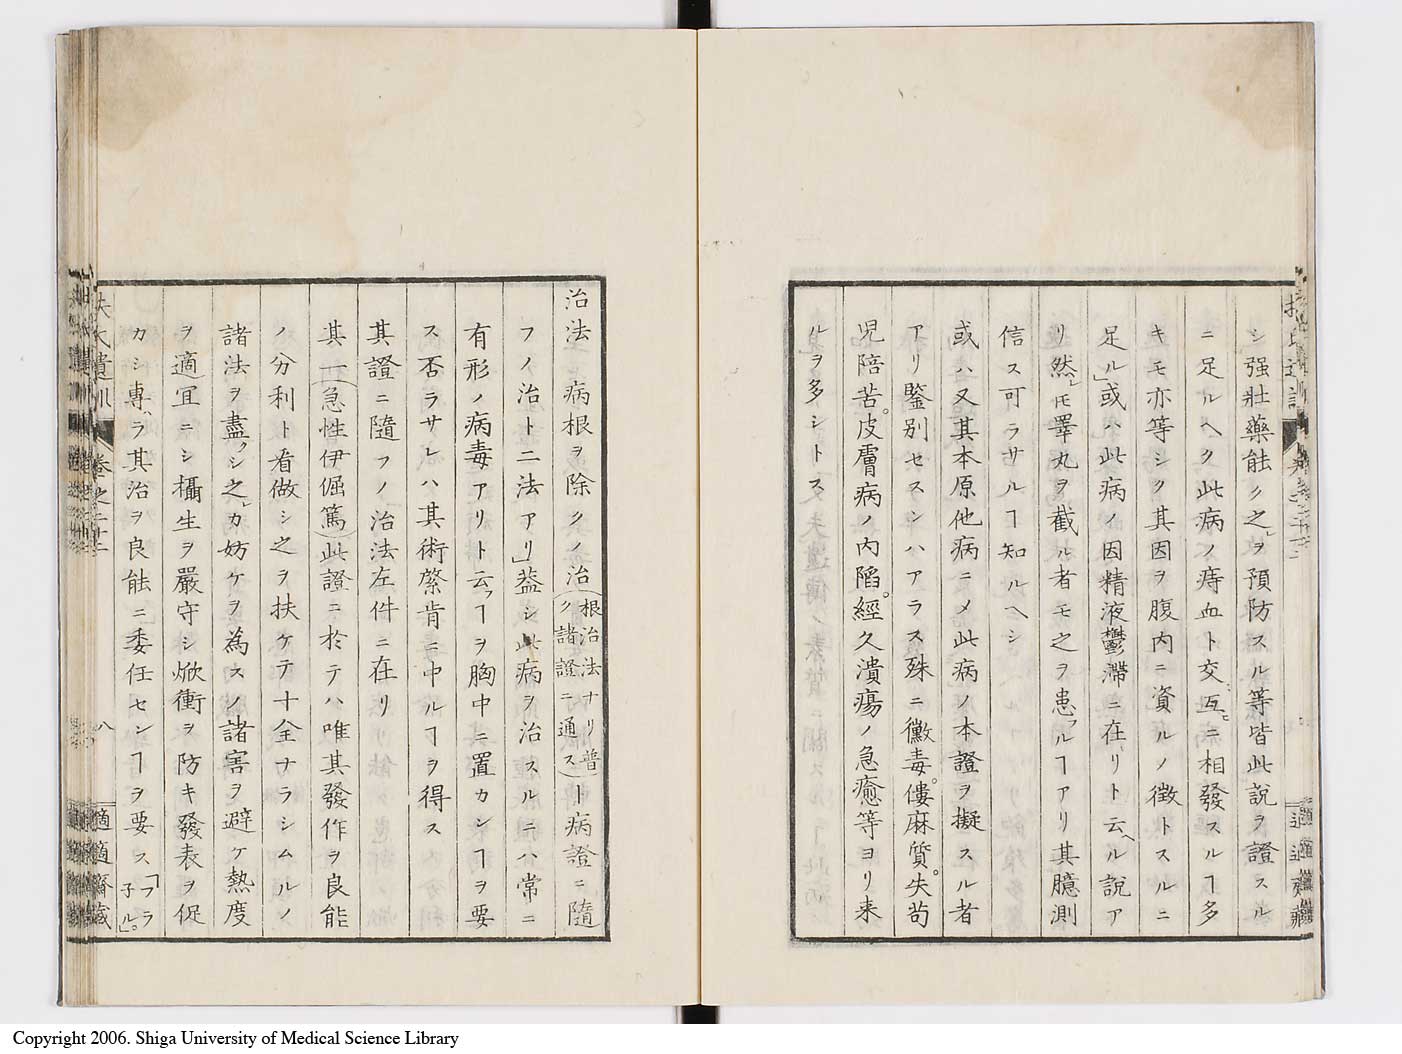 シ強壯藥能ク之ヲ預防スル等皆此説ヲ證スル
ニ足ルヘク此病ノ痔血ト交互ニ相發スルヿ多
キモ亦等シク其因ヲ腹内ニ資ルノ徴トスルニ
足ル」或ハ此病ノ因精液鬱滯ニ在リト云ヘル説ア
リ然レヒ睪丸ヲ截ル者モ之ヲ患フルヿアリ其臆測
信ス可ラサルヿ知ルヘシ
或ハ又其本原他病ニメ此病ノ本證ヲ擬スル者
アリ鑒別セスンハアラス殊ニ黴毒。僂麻質。失苟
児陪苦。皮膚病ノ内陷。經久潰瘍ノ急癒等ヨリ来
ルヲ多シトス
治法 病根ヲ除クノ治(根治法ナリ普ク諸證ニ通ス)ト病證ニ隨
フノ治ト二法アリ」葢シ此病ヲ治スルニハ常ニ
有形ノ病毒アリト云フヿヲ胸中ニ置カンヿヲ要
ス否ラサレハ其術綮肯ニ中ルヿヲ得ス
其證ニ隨フノ治法左件ニ在リ
其一(急性伊倔篤)此證ニ於テハ唯其發作ヲ良能
ノ分利ト看做シ之ヲ扶ケテ十全ナラシムルノ
諸法ヲ盡シ之レカ妨ケヲ為スノ諸害ヲ避ケ熱度
ヲ適宜ニシ攝生ヲ嚴守シ焮衝ヲ防キ發表ヲ促
カシ專ラ其治ヲ良能ニ委任センヿヲ要ス「フラ
子ル」。
扶氏遺訓 卷之二十二 八 適適齋藏